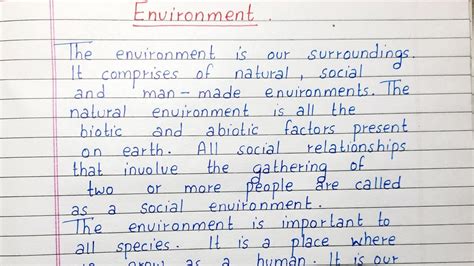 Environment.
The environment is our surroundings.
It comprises of natural, social
and man-made environments. The
natural environment is all the
biotic and abiotic factors present
on earth. All social relationships
that involve the gathering of
two or more people are called
as a social environment.
The environment is important to
all species. It is a place where
grow as a human. It is our